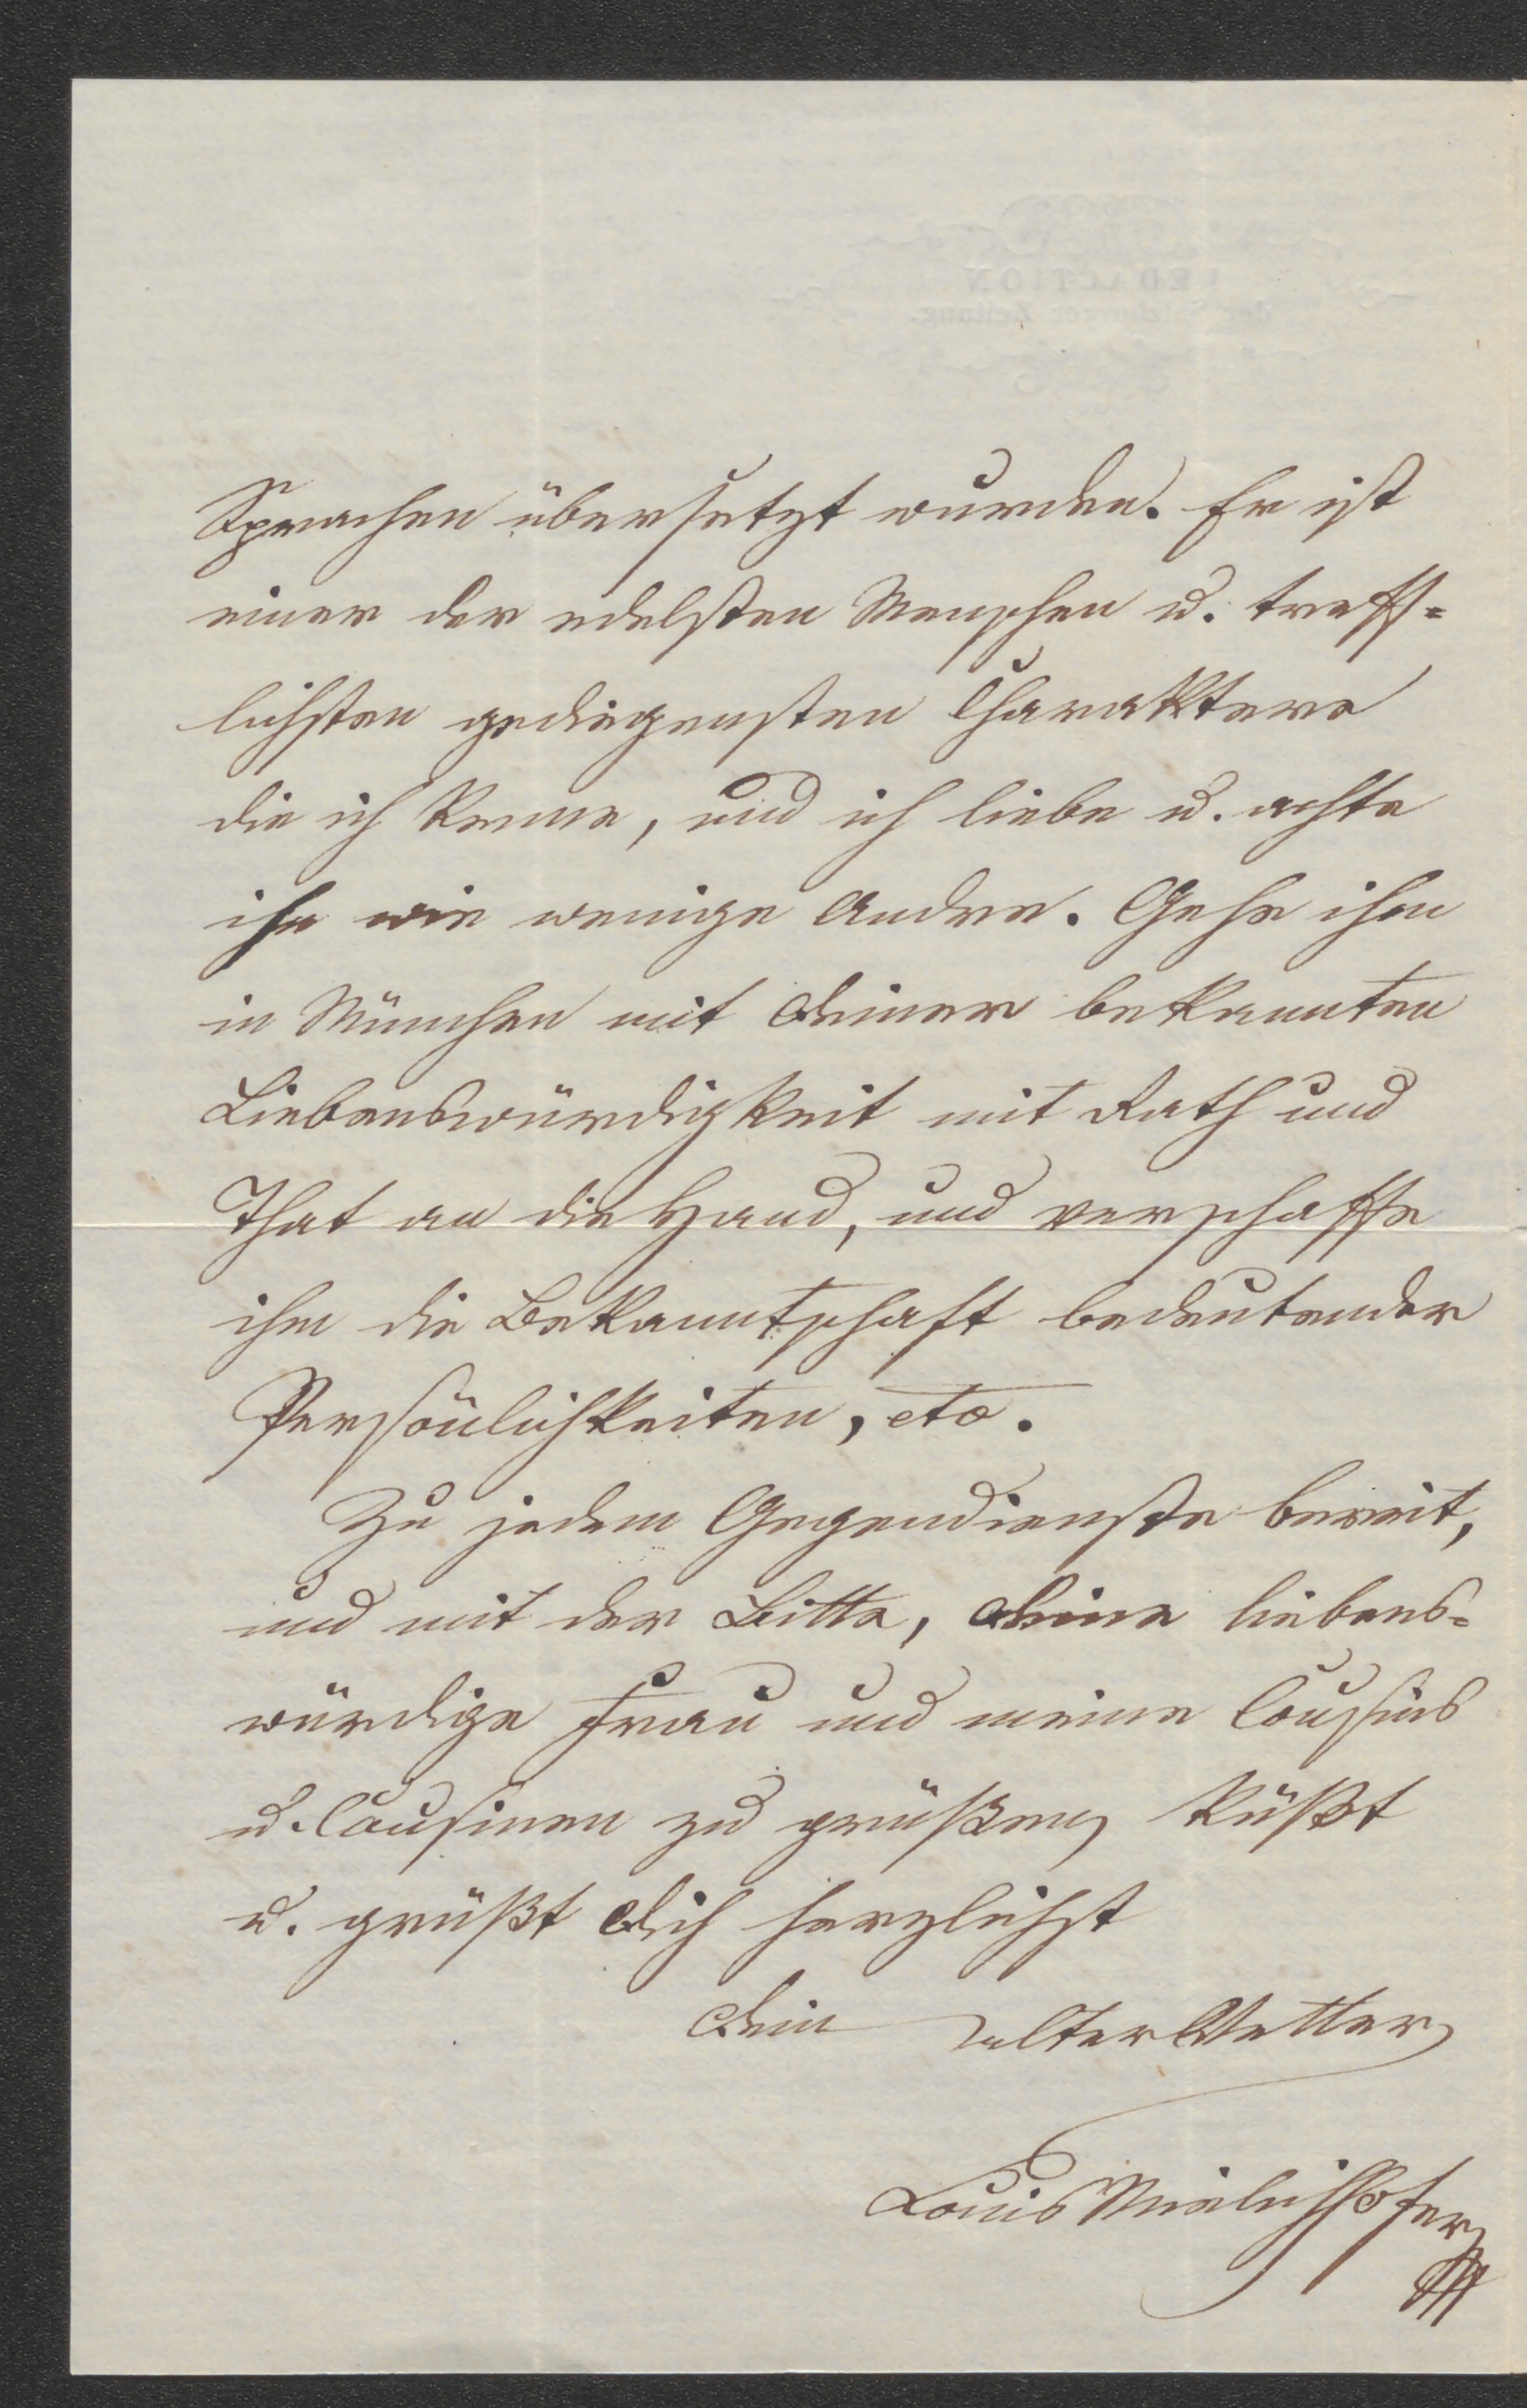 Sprachen übersetzt wurden. Er ist
einer der edelsten Menschen u. treff=
lichsten gediegensten Charaktere
die ich kenne, und ich liebe u. achte
ihn wie wenige Andre. Gehe ihm
in München mit Deiner bekannten
Liebenswürdigkeit mit Rath und
That an die Hand, und verschaffe
ihm die Bekanntschaft bedeutender
Persönlichkeiten, etc.
Zu jedem Gegendienste bereit,
und mit der Bitte, Deine liebens=
würdige Frau und meine Cousins
u. Cousinen zu grüßen, küßt
u. grüßt Dich herzlichst
Dein alter Vetter
Louis Mielichhofer